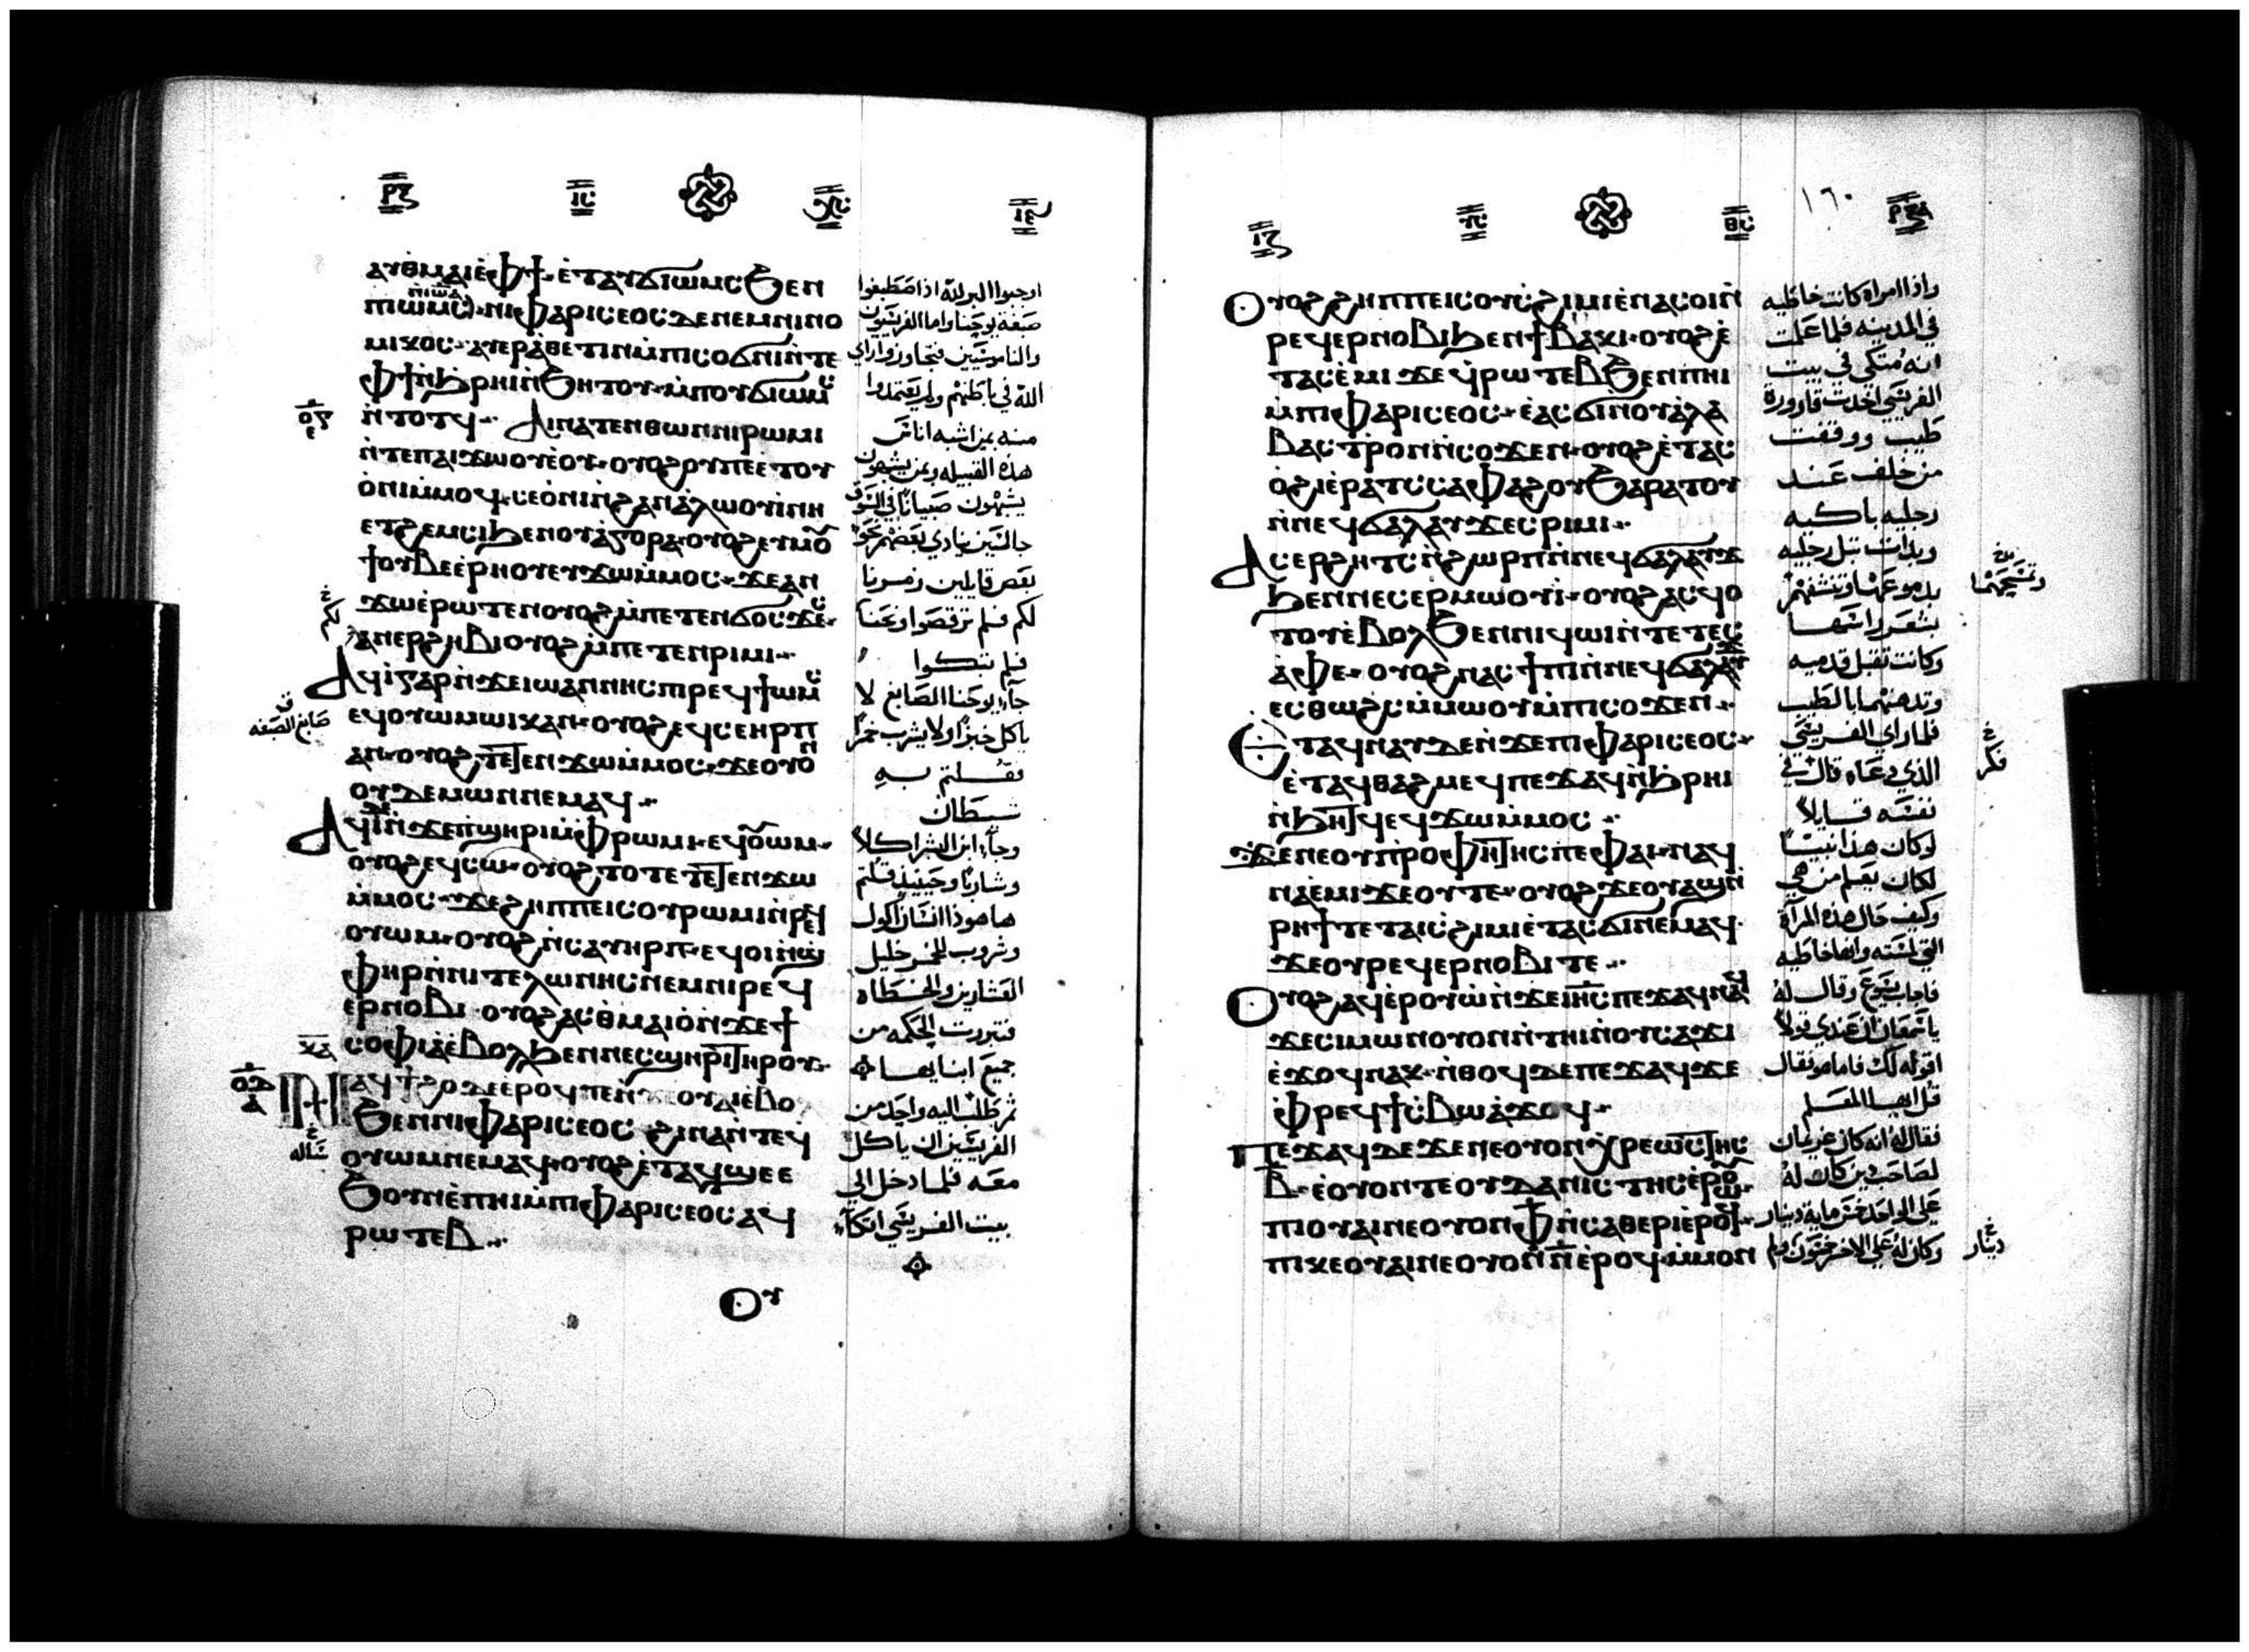 ⲁⲩⲑⲙⲁⲓⲉ̀ⲫϯ· ⲉ̀ⲧⲁⲩϭⲓⲱⲙⲥ ϧⲉⲛ
ⲡⲓⲱⲙⲥ· ⲛⲓⲫⲁⲣⲓⲥⲉⲟⲥ ⲇⲉ ⲛⲉⲙⲛⲓⲛⲟ
ⲙⲓⲕⲟⲥ· ⲁⲩⲉⲣⲁ̀ⲑⲉⲧⲓⲛ ⲙ̀ⲡⲓⲥⲟϭⲛⲓ ⲛ̀ⲧⲉ
ⲫϯ ⲛ̀ϧⲣⲏⲓ ⲛ̀ϧⲏⲧⲟⲩ· ⲙ̀ⲡⲟⲩϭⲓⲱⲙⲥ
ⲛ̀ⲧⲟⲧϥ· ⲁⲓⲛⲁⲧⲉⲛⲑⲱⲛ ⲛⲓⲣⲱⲙⲓ
ⲛ̀ⲧⲉⲡⲁⲓϫⲱⲟⲩ ⲉ̀ⲟⲩ· ⲟⲩⲟϩ ⲟⲩⲡⲉ ⲉⲧⲟⲩ
ⲟ̀ⲛⲓ ⲙ̀ⲙⲟϥ· ⲥⲉⲟ̀ⲛⲓ ⲛ̀ϩⲁⲛⲁ̀ⲗⲱⲟⲩⲓ̀ ⲛⲏ
ⲉⲧϩⲉⲙⲥⲓ ϧⲉⲛⲟⲩⲁ̀ⲅⲟⲣⲁ· ⲟⲩⲟϩ ⲉⲧⲙⲟ̅
ϯⲟⲩⲃⲉ ⲉ̀ⲣⲏⲟⲩ ⲉⲩϫⲱ ⲙ̀ⲙⲟⲥ· ϫⲉ ⲁⲛ
ϫⲱ ⲉ̀ⲣⲱⲧⲉⲛ ⲟⲩⲟϩ ⲙ̀ⲡⲉⲧⲉⲛϭⲟⲥϫⲉⲥ·
ⲁⲛⲉⲣϩⲏⲃⲓ ⲟⲩⲟϩ ⲙ̀ⲡⲉⲧⲉⲛⲣⲓⲙⲓ·
ⲁϥⲓ̀ ⲅⲁⲣ ⲛ̀ϫⲉ ⲓⲱⲁⲛⲛⲏⲥ ⲡⲓⲣⲉϥϯⲱⲙⲥ
ⲉϥⲟⲩⲱⲙ ⲱⲓⲕ ⲁⲛ· ⲟⲩⲟϩ ⲉϥⲥⲉ ⲏⲣⲡ
ⲁⲛ· ⲟⲩⲟϩ ⲧⲉⲧⲉⲛϫⲱ ⲙ̀ⲙⲟⲥ· ϫⲉ ⲟⲩⲟⲛ
ⲟⲩⲇⲉⲙⲱⲛ ⲛⲉⲙⲁϥ·
ⲁϥⲓ̀ ⲇⲉ ⲛ̀ϫⲉⲡϣⲏⲣⲓ ⲙ̀ⲫⲣⲱⲙⲓ· ⲉϥⲟ̅ⲱⲙ·
ⲟⲩⲟϩ ⲉϥⲥⲱ· ⲟⲩⲟϩ ⲧⲟⲧⲉ ⲧⲉⲧⲉⲛϫⲱ
ⲙ̀ⲙⲟⲥ· ϫⲉ ϩⲏⲡⲡⲉ ⲓⲥ ⲟⲩⲣⲱⲙⲓ ⲛ̀ⲣⲉϥ
ⲟⲩⲱⲙ· ⲟⲩⲟϩ ⲛ̀ⲥⲁⲩⲏⲣⲡ· ⲉϥⲟⲓ ⲛ̀ϣ
ⲫⲏⲣ ⲛ̀ⲛⲓⲧⲉⲗⲱⲛⲏⲥ ⲛⲉⲙⲛⲓⲣⲉϥ
ⲉⲣⲛⲟⲃⲓ· ⲟⲩⲟϩ ⲁⲥⲑⲙⲁⲓⲟ̀ ⲛ̀ϫⲉϯ
ⲥⲟⲫⲓⲁ̀ ⲉ̀ⲃⲟⲗϧⲉⲛ ⲛⲉⲥϣⲏⲣⲓ ⲧⲏⲣⲟⲩ·
ⲛⲁϥϯϩⲟ ⲇⲉ ⲉ̀ⲣⲟϥ ⲡⲉ ⲛ̀ϫⲉⲟⲩⲁⲓ ⲉ̀ⲃⲟ
ϧⲉⲛ ⲛⲓⲫⲁⲣⲓⲥⲉⲟⲥ ϩⲓⲛⲁ ⲛ̀ⲧⲉϥ
ⲟⲩⲱⲙ ⲛⲉⲙⲁϥ· ⲟⲩⲟϩ ⲉ̀ⲧⲁϥϣⲉ ⲉ
ϧⲟⲩⲛ ⲉ̀ⲡⲏⲓ ⲙ̀ⲡⲓⲫⲁⲣⲓⲥⲉⲟⲥ ⲁϥ
ⲣⲱⲧⲉⲃ·
ⲟⲩ
اوجبوا البر لله اذ اصطبغوا
صبغة يوحنا واما الفريسيون
والناموسيين فتجاوزوا راي
الله في باطنهم ولم يعتمدوا
منه بمن اشبه اناس
هذه القبيله وبمن يشبهون
يشبهون صبيانا في السوق
جالسين ينادي بعضهم نحو
بعض قايلين زمرنا
لكم فلم ترقصوا ونحنا
فلم تبكوا
جاء يوحنا الصابغ لا
ياكل خبزا ولا يشرب خمرا
فقلتم به
شيطان
وجاء ابن البشر اكلا
وشاربا وحينيذ قلتم
هاهوذا انسان اكول
وشروب للخمر خليل
العشارين والخطاه
فتبررت الحكمه من
جميع ابنايها
ثم طلب اليه واحد من
الفريسيين ان ياكل
معه فلما دخل الي
بيت الفريسي اتكاء
لكم
صابغ الصبغه
ساله
١٦٠
ⲟⲩⲟϩ ϩⲏⲡⲡⲉ ⲓⲥ ⲟⲩⲥϩⲓⲙⲓ ⲉ̀ⲛⲁⲥⲟⲓ ⲛ̀
ⲣⲉϥⲉⲣⲛⲟⲃⲓ ϧⲉⲛϯⲃⲁⲕⲓ· ⲟⲩⲟϩ ⲉ̀
ⲧⲁⲥⲉ̀ⲙⲓ ϫⲉ ϥⲣⲱⲧⲉⲃ ϧⲉⲛⲡⲏⲓ
ⲙ̀ⲡⲓⲫⲁⲣⲓⲥⲉⲟⲥ· ⲉ̀ⲁⲥϭⲓ ⲛⲟⲩⲁ̀ⲗⲁ
ⲃⲁⲥⲧⲣⲟⲛ ⲛ̀ⲥⲟϫⲉⲛ· ⲟⲩⲟϩ ⲉ̀ⲧⲁⲥ
ⲟ̀ϩⲓ ⲉ̀ⲣⲁⲧⲥ ⲥⲁⲫⲁϩⲟⲩ ϧⲁⲣⲁⲧⲟⲩ
ⲛ̀ⲛⲉϥϭⲁⲗⲁⲩϫ ⲉⲥⲣⲓⲙⲓ·
ⲁⲥⲉⲣϩⲏⲧⲥ ⲛ̀ϩⲱⲣⲡ ⲛ̀ⲛⲉϥϭⲁⲗⲁⲩϫ
ϧⲉⲛ ⲛⲉⲥⲉⲣⲙⲱⲟⲩⲓ̀· ⲟⲩⲟϩ ⲁⲥϥⲟ
ⲧⲟⲩ ⲉ̀ⲃⲟⲗ ϧⲉⲛ ⲛⲓϥⲱⲓ ⲛ̀ⲧⲉ ⲧⲉⲥ
ⲁ̀ⲫⲉ· ⲟⲩⲟϩ ⲛⲁⲥϯⲡⲓ ⲛ̀ⲛⲉϥϭⲁⲗⲁⲩϫ
ⲉⲥⲑⲱϩⲥ ⲙ̀ⲙⲱⲟⲩ ⲙ̀ⲡⲓⲥⲟϫⲉⲛ·
ⲉ̀ⲧⲁϥⲛⲁⲩ ⲇⲉ ⲛ̀ϫⲉⲡⲓⲫⲁⲣⲓⲥⲉⲟⲥ·
ⲉ̀ⲧⲁϥⲑⲁϩⲙⲉϥ ⲡⲉϫⲁϥ ⲛ̀ϧⲣⲏⲓ
ⲛ̀ϧⲏⲧϥ ⲉϥϫⲱ ⲙ̀ⲙⲟⲥ·
ϫⲉⲛⲉ ⲟⲩⲡⲣⲟⲫⲏⲧⲏⲥ ⲡⲉ ⲫⲁⲓ· ⲛⲁϥ
ⲛⲁⲉ̀ⲙⲓ ϫⲉ ⲟⲩ ⲧⲉ· ⲟⲩⲟϩ ϫⲉ ⲟⲩⲁϣ ⲛ̀
ⲣⲏϯ ⲧⲉ ⲧⲁⲓⲥϩⲓⲙⲓ ⲉ̀ⲧⲁⲥϭⲓ ⲛⲉⲙⲁϥ·
ϫⲉ ⲟⲩⲣⲉϥⲉⲣⲛⲟⲃⲓ ⲧⲉ·
ⲟⲩⲟϩ ⲁϥⲉⲣⲟⲩⲱ̀ ⲛ̀ϫⲉⲓⲏ̅ⲥ̅ ⲡⲉϫⲁϥ ⲛⲁϥ
ϫⲉ ⲥⲓⲙⲱⲛ ⲟⲩⲟⲛ ⲛ̀ⲧⲏⲓ ⲛ̀ⲟⲩⲥⲁϫⲓ
ⲉ̀ϫⲟϥ ⲛⲁⲕ· ⲛ̀ⲑⲟϥ ⲇⲉ ⲡⲉϫⲁϥ ϫⲉ
ⲫⲣⲉϥϯⲥⲃⲱ ⲁ̀ϫⲟϥ·
ⲡⲉϫⲁϥ ⲇⲉ ϫⲉⲛⲉ ⲟⲩⲟⲛ ⲭⲣⲉⲱⲥⲧⲏⲥ
ⲃ̅· ⲉ̀ⲟⲩⲟⲛⲧⲉ ⲟⲩⲇⲁⲛⲓⲥⲧⲏⲥ ⲉ̀ⲣⲱⲟⲩ·
ⲡⲓⲟⲩⲁⲓ ⲛⲉ ⲟⲩⲟⲛ ⲫ̅ ⲛ̀ⲥⲁⲑⲉⲣⲓ ⲉ̀ⲣⲟϥ·
ⲡⲓⲕⲉⲟⲩⲁⲓ ⲛⲉ ⲟⲩⲟⲛ ⲛ̅ ⲉ̀ⲣⲟϥ· ⲙ̀ⲙⲟⲛ
واذا امراة كانت خاطيه
في المدينه فلما علمت
انه متكي في بيت
الفريسي اخذت قارورة
طيب ووقفت
من خلف عند
رجليه باكيه
وبدات تبل رجليه
بدموعها وتنشفهم
بشعر راسها
وكانت تقبل قدميه
وتدهنهما بالطيب
فلما راي الفريسي
الذي دعاه قال في
نفسه قايلا
لو كان هذا نبيا
لكان يعلم من هي
وكيف حال هذه المراة
التي لمسته وانها خاطيه
فاجاب يسوع وقال له
ياسمعان ان عندي قولا
اقوله لك فاما هو فقال
قل ايها المعلم
فقال له انه كان غريمان
لصاحب دين كان له
علي الواحد خمس ماية دينار
وكان له علي الاخر خمسون ولم
وتمسحهما
فكر
دينار